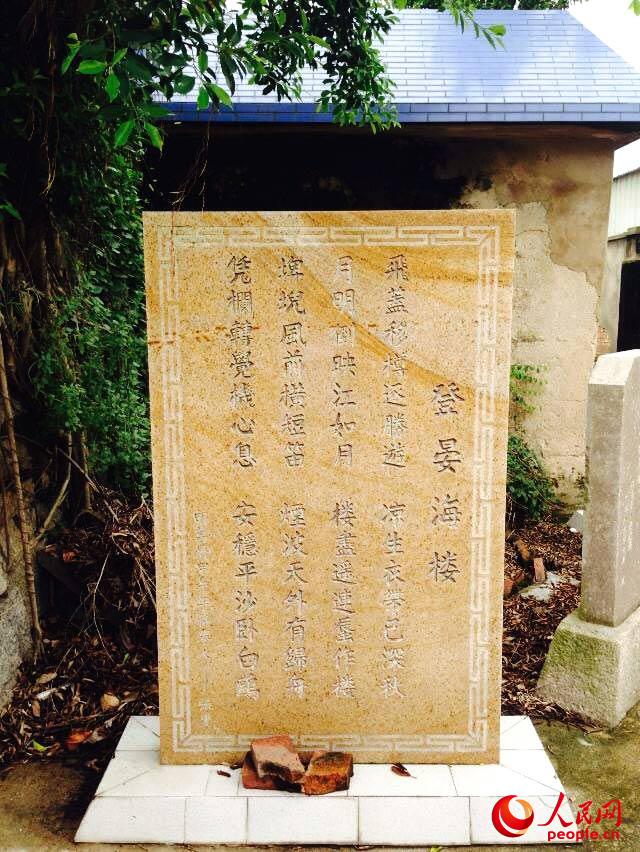 登晏海楼
飛蓋移樽逐勝遊 凉生衣帶已深秋
月明倒映江如月 樓盡遥連蜃作樓
埤堄風前橫短笛 煙波天外有歸舟
凭欄轉覺機心息 安穩平沙卧白鷗
張燮
人民网
people.cn